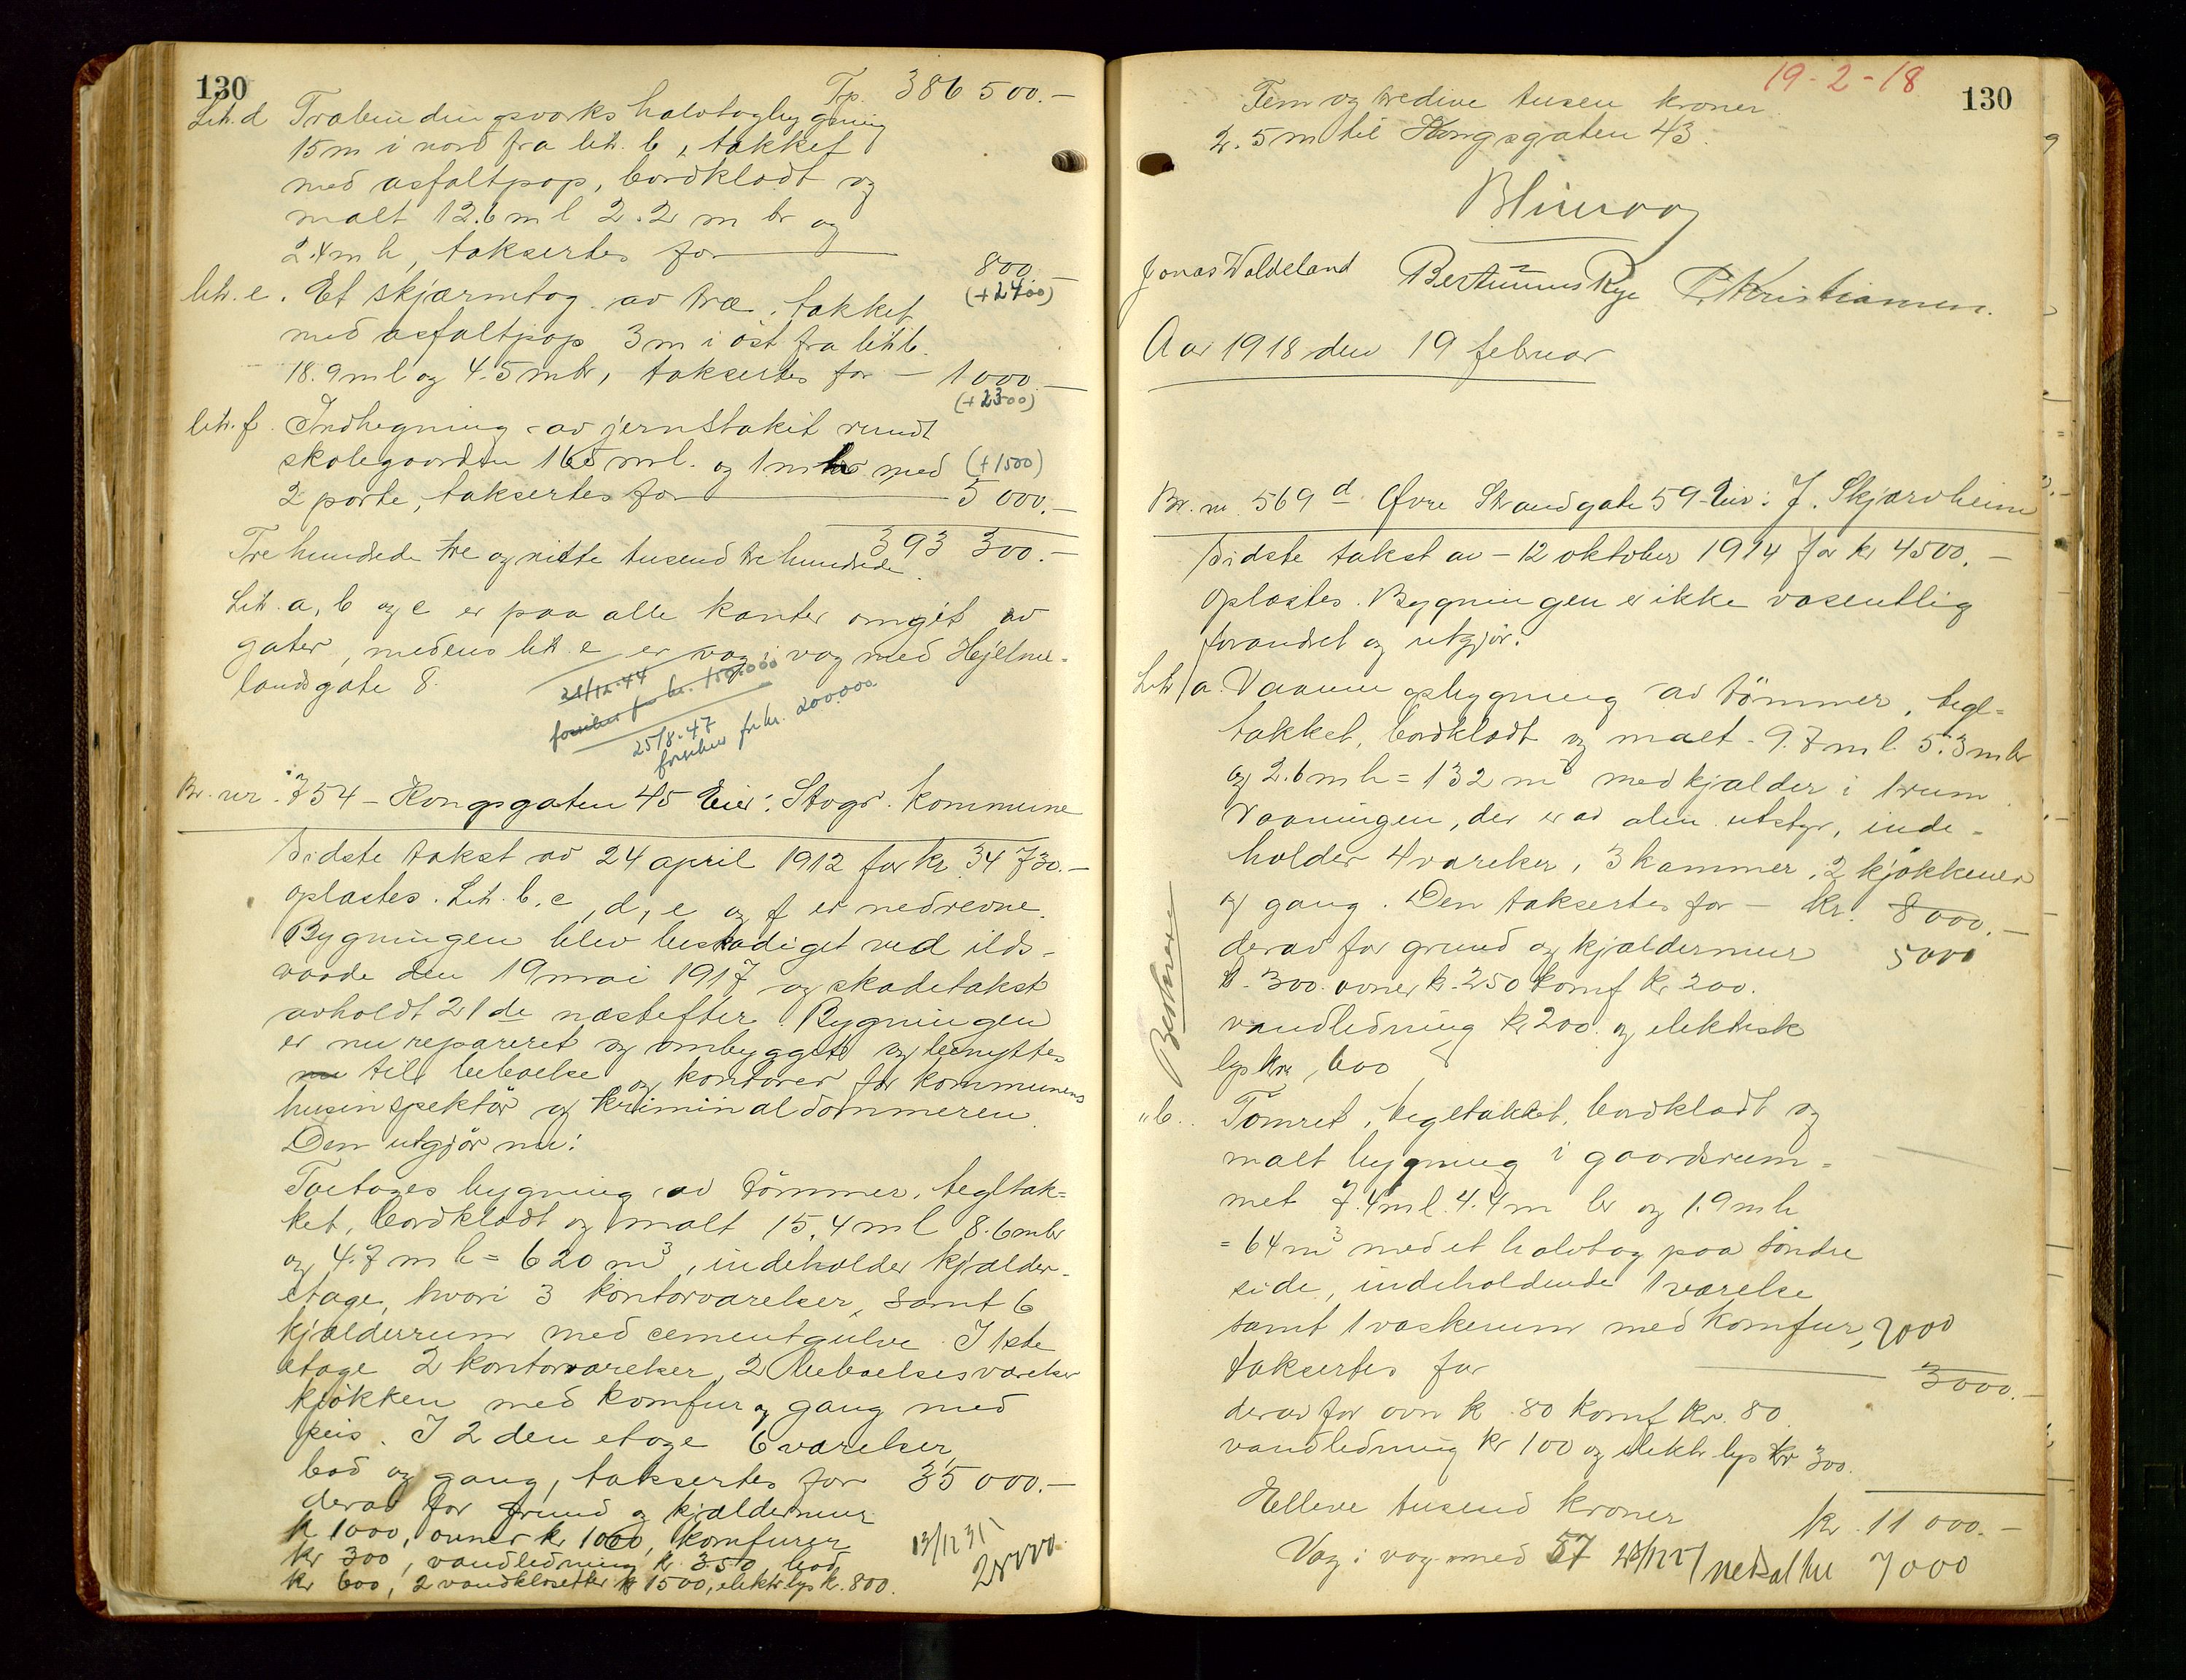 130
Tp. 386 500.-
Lit. d Træbindingsverks halvtagbygning
15 m i nord fra lit. b, tækket
med asfaltpap, bordklædt og
malt 12.6 m l 2.2 m br og
2.4 m h, taksertes for 800.-
(+2400)
lit. e. Et skjærmtag av træ, tækket
med asfaltpap 3 m i øst fra lit b.
18.9 m l og 4.5 m br, taksertes for - 1000.-
(+2300)
lit. f. Indhegning av jernstakit rundt
skolegaarden 165 m l. og 1 m h med (+1500)
2 porte, taksertes for 5 000.-
393 300.-
Tre hundrede tre og nitte tusend tre hundrede.
Lit. a, b og c er paa alle kanter omgit av
gater, medens lit. e er væg i væg med Hjelme-
landsgate 8.
28/12-44
forsikret for kr. 150.000
25/8-47
forsikres for kr. 200.000
Br. nr. 754 - Kongsgaten 45 Eier: Stvgr. kommune
Sidste takst av 24 april 1912 for kr. 34 730.-
oplæstes. Lit. b, c, d, e og f er nedrevne.
Bygningen blev beskadiget ved ilds-
vaade den 19 mai 1917 og skadetakst
avholdt 21de næstefter. Bygningen
er nu repareret og ombygget og benyttes
nu til beboelse og kontorer for kommunens
husinspektør og kriminaldommeren.
Den utgjør nu:
Toetages bygning av tømmer, tegltæk-
ket, bordklædt og malt 15,4 m l 8.6 m br
og 4.7 m h = 620 m³, indeholder kjælder-
etage, hvori 3 kontorværelser, samt 6
kjælderrum med cementgulve. I 1ste
etage 2 kontorværelser, 2 beboelsesværelser
kjøkken med komfur og gang med
peis. I 2den etage 6 værelser,
bad og gang, taksertes for 35 000.-
derav for grund og kjældermur
kr 1000, ovner kr 1000, komfurer
kr 300, vandledning kr. 350, bad
kr 600, 2 vandklosetter kr 1500, elektr lys kr. 800.
13/12 35
28000
19-2-18
130
Fem og tredive tusen kroner.
2.5 m til Kongsgaten 43.
Jonas Voldeland Bertinius Rye P. Kristiansen.
Aar 1918 den 19 februar
Br. nr. 569 d. Øvre Strandgate 59 - Eier: J. Skjærvheim
Sidste takst av - 12 oktober 1914 for kr 4500.-
oplæstes. Bygningen er ikke væsentlig
forandret og utgjør:
Lit a. Vaaningsbygning av tømmer, tegl-
tækket, bordklædt og malt - 9.7 m l 5.3 m br
og 2.6 m h = 132 m³ med kjælder i 1 rum.
Vaaningen, der er av alm. utstyr, inde-
holder 4 værelser, 3 kammer, 2 kjøkkener
og gang. Den taksertes for - kr. 8000.-
derav for grund og kjældermur 5000
kr. 300. ovner kr. 250 komf kr 200.
vandledning kr 200. og elektrisk
lys kr, 600
" b. Tømret, tegltækket, bordklædt og
malt bygning i gaardsrum-
met 7.4 m l. 4.4 m br og 1.9 m h
= 64 m³ med et halvtag paa søndre
side, indeholdende 1 værelse
samt 1 vaskerum med komfur, 2000
taksertes for 3000.-
derav for ovn kr. 80 komf kr. 80
vandledning kr 100 og elektr lys kr 300.
Elleve tusend kroner kr. 11 000.-
Væg i væg med 57 28/12 25 nedsat til 7000